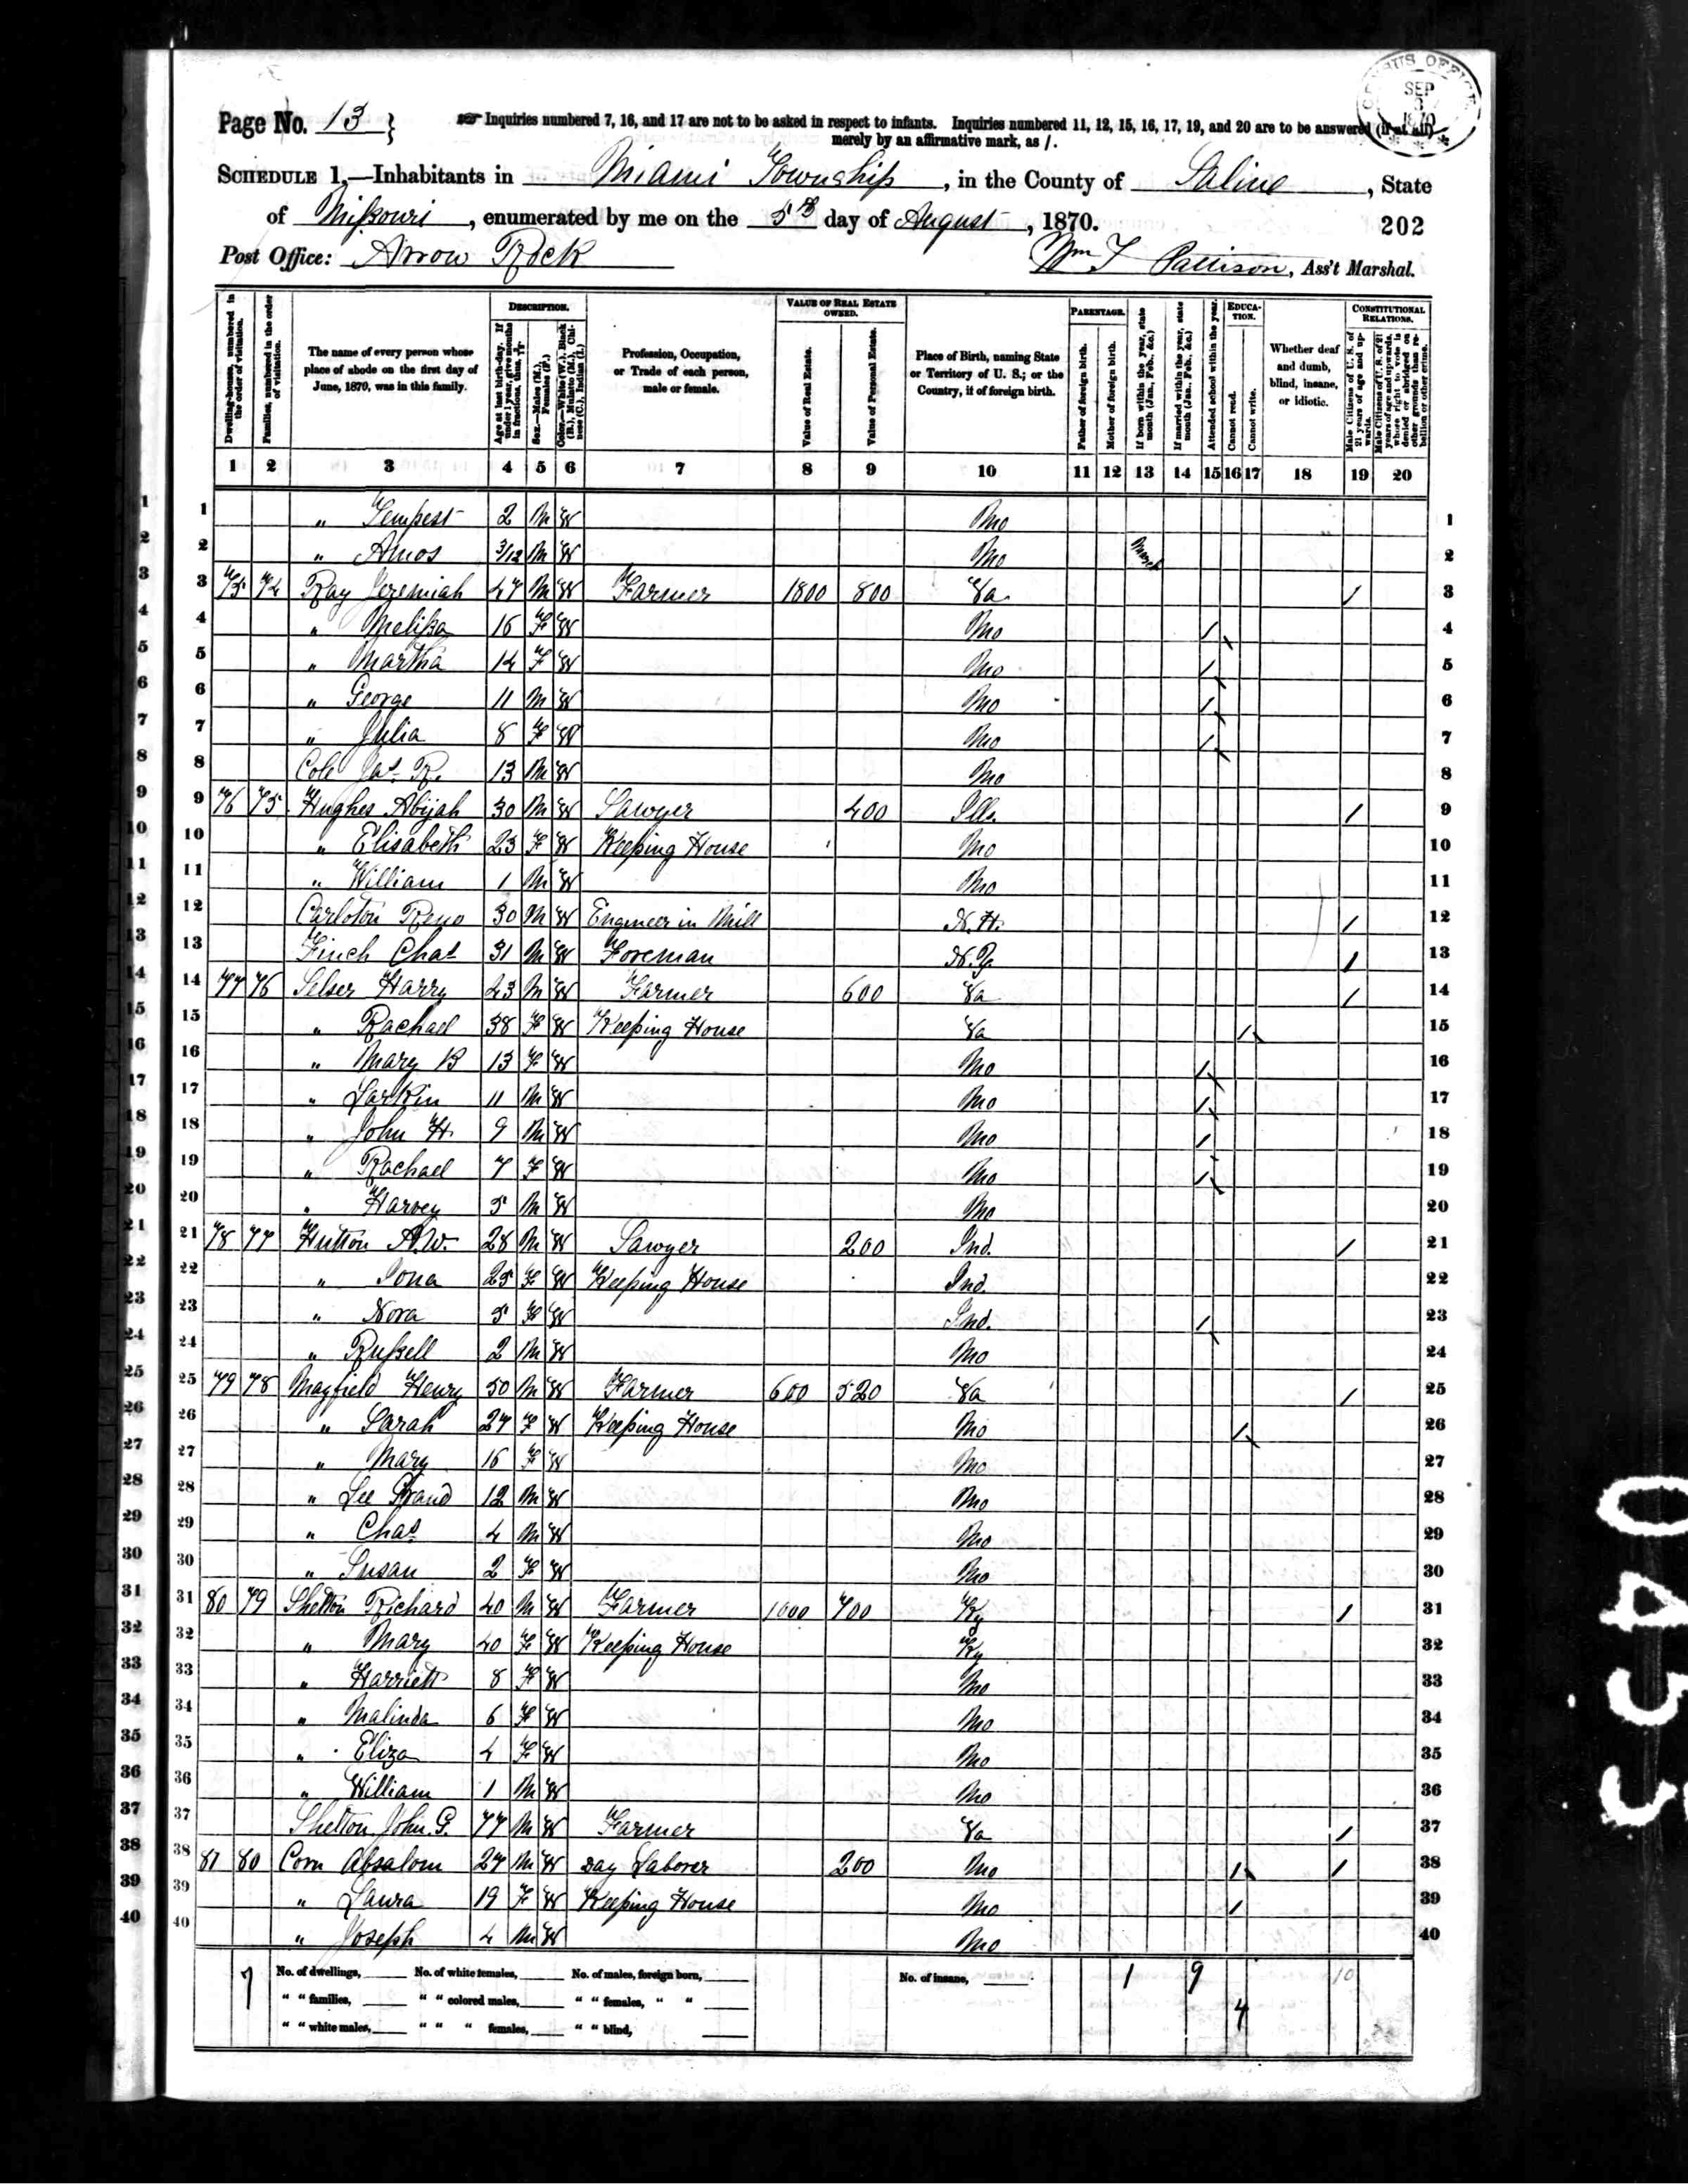 CENSUS OFFICE SEP 3 1870
Page No. 13 }
Inquiries numbered 7, 16, and 17 are not to be asked in respect to infants. Inquiries numbered 11, 12, 15, 16, 17, 19, and 20 are to be answered (if at all)
merely by an affirmative mark, as /.
SCHEDULE 1.—Inhabitants in Miami Township, in the County of Saline, State
of Missouri, enumerated by me on the 5th day of August, 1870.
202
Post Office: Arrow Rock
Wm T Pattison, Ass't Marshal.
Dwelling-houses, numbered in the order of visitation.
Families, numbered in the order of visitation.
The name of every person whose place of abode on the first day of June, 1870, was in this family.
DESCRIPTION.
Age at last birth-day. If under 1 year, give months in fractions, thus, 3/12
Sex.—Males (M.), Females (F.)
Color.—White (W.), Black (B.), Mulatto (M.), Chinese (C.), Indian (I.)
Profession, Occupation, or Trade of each person, male or female.
VALUE OF REAL ESTATE OWNED.
Value of Real Estate.
Value of Personal Estate.
Place of Birth, naming State or Territory of U. S.; or the Country, if of foreign birth.
PARENTAGE.
Father of foreign birth.
Mother of foreign birth.
If born within the year, state month (Jan., Feb., &c.)
If married within the year, state month (Jan., Feb., &c.)
Attended school within the year.
EDUCATION.
Cannot read.
Cannot write.
Whether deaf and dumb, blind, insane, or idiotic.
CONSTITUTIONAL RELATIONS.
Male Citizens of U. S. of 21 years of age and upwards.
Male Citizens of U. S. of 21 years of age and upwards, whose right to vote is denied or abridged on other grounds than rebellion or other crime.
1 2 3 4 5 6 7 8 9 10 11 12 13 14 15 16 17 18 19 20
1 " Tempest 2 M W Mo 1
2 " Amos 3/12 M W Mo March 2
3 75 74 Ray Jeremiah 47 M W Farmer 1800 800 Va / 3
4 " Melissa 16 F W Mo / 4
5 " Martha 14 F W Mo / 5
6 " George 11 M W Mo / 6
7 " Julia 8 F W Mo / 7
8 Cole Jas R. 13 M W Mo 8
9 76 75 Hughes Abijah 30 M W Sawyer 400 Ills. / 9
10 " Elisabeth 23 F W Keeping House Mo 10
11 " William 1 M W Mo 11
12 Carloton Reno 30 M W Engineer in Mill N.H. / 12
13 Finch Chas 31 M W Foreman N.Y. / 13
14 77 76 Selser Harry 43 M W Farmer 600 Va / 14
15 " Rachael 38 F W Keeping House Va / 15
16 " Mary B 13 F W Mo / 16
17 " Larkin 11 M W Mo / 17
18 " John H. 9 M W Mo / 18
19 " Rachael 7 F W Mo / 19
20 " Harvey 5 M W Mo 20
21 78 77 Hutton A.W. 28 M W Sawyer 200 Ind. / 21
22 " Iona 25 F W Keeping House Ind. 22
23 " Nora 5 F W Ind. / 23
24 " Russell 2 M W Mo 24
25 79 78 Mayfield Henry 50 M W Farmer 600 520 Va / 25
26 " Sarah 27 F W Keeping House Mo / 26
27 " Mary 16 F W Mo 27
28 " Lee Grand 12 M W Mo 28
29 " Chas 4 M W Mo 29
30 " Susan 2 F W Mo 30
31 80 79 Shelton Richard 40 M W Farmer 1000 700 Ky / 31
32 " Mary 40 F W Keeping House Ky 32
33 " Harriett 8 F W Mo 33
34 " Malinda 6 F W Mo 34
35 " Eliza 4 F W Mo 35
36 " William 1 M W Mo 36
37 Shelton John G. 77 M W Farmer Va / 37
38 81 80 Corn Absalom 27 M W Day Laborer 200 Mo / / 38
39 " Laura 19 F W Keeping House Mo / 39
40 " Joseph 4 M W Mo 40
7 No. of dwellings, No. of white females, No. of males, foreign born, No. of insane, 1 9 10
" " families, " " colored males, " " females, " " 4
" " white males, " " " females, " " blind,
0455